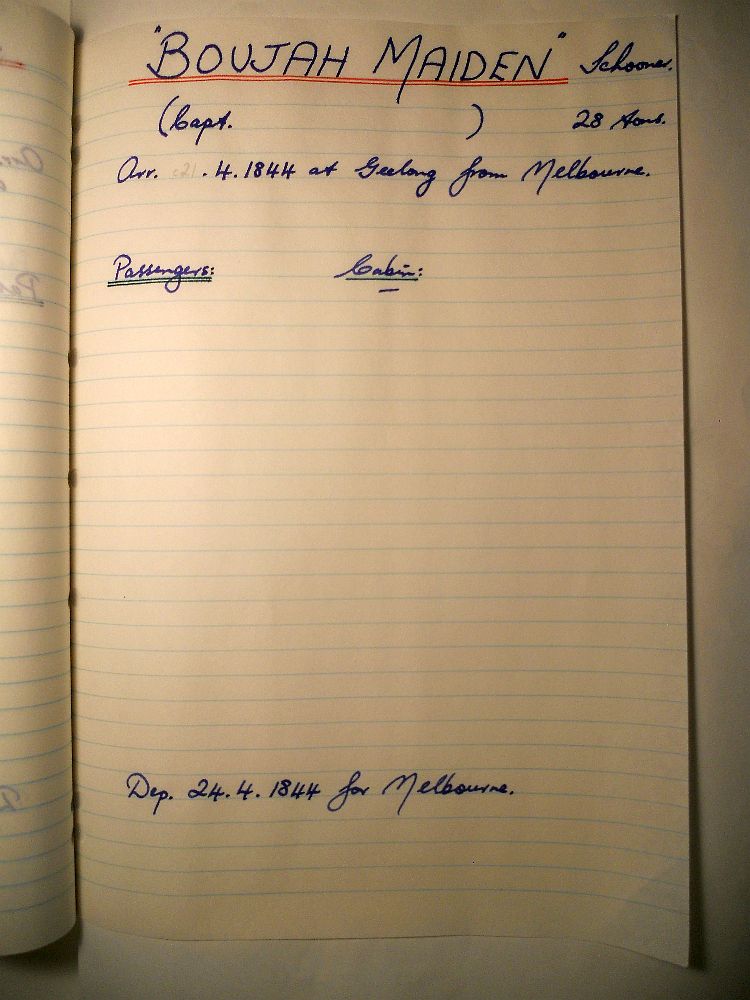 "BOUJAH MAIDEN" Schooner.
(Capt. ) 28 tons.
Arr. c21 . 4. 1844 at Geelong from Melbourne.
Passengers: Cabin:
Dep. 24. 4. 1844 for Melbourne.